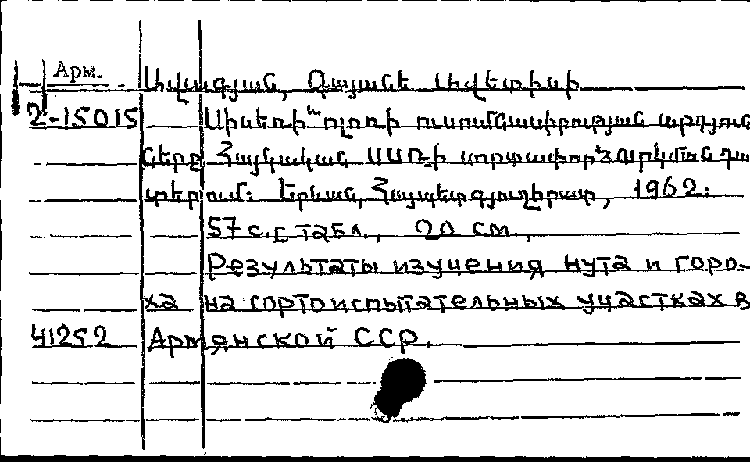 Арм.
Ավագյան, Գայանե Ավետիսի
2-15015 Սիսեռի ոլոռի ուսումնասիրության արդյուն
ները Հայկական ՍՍՌ-ի սորտափորձարկման դա
տերում: Երևան, Հայպետգյուղհրատ, 1962:
57 с. с табл., 20 см,
Результаты изучения нута и горо-
ха на сортоиспытательных участках в
41252 Армянской ССР.